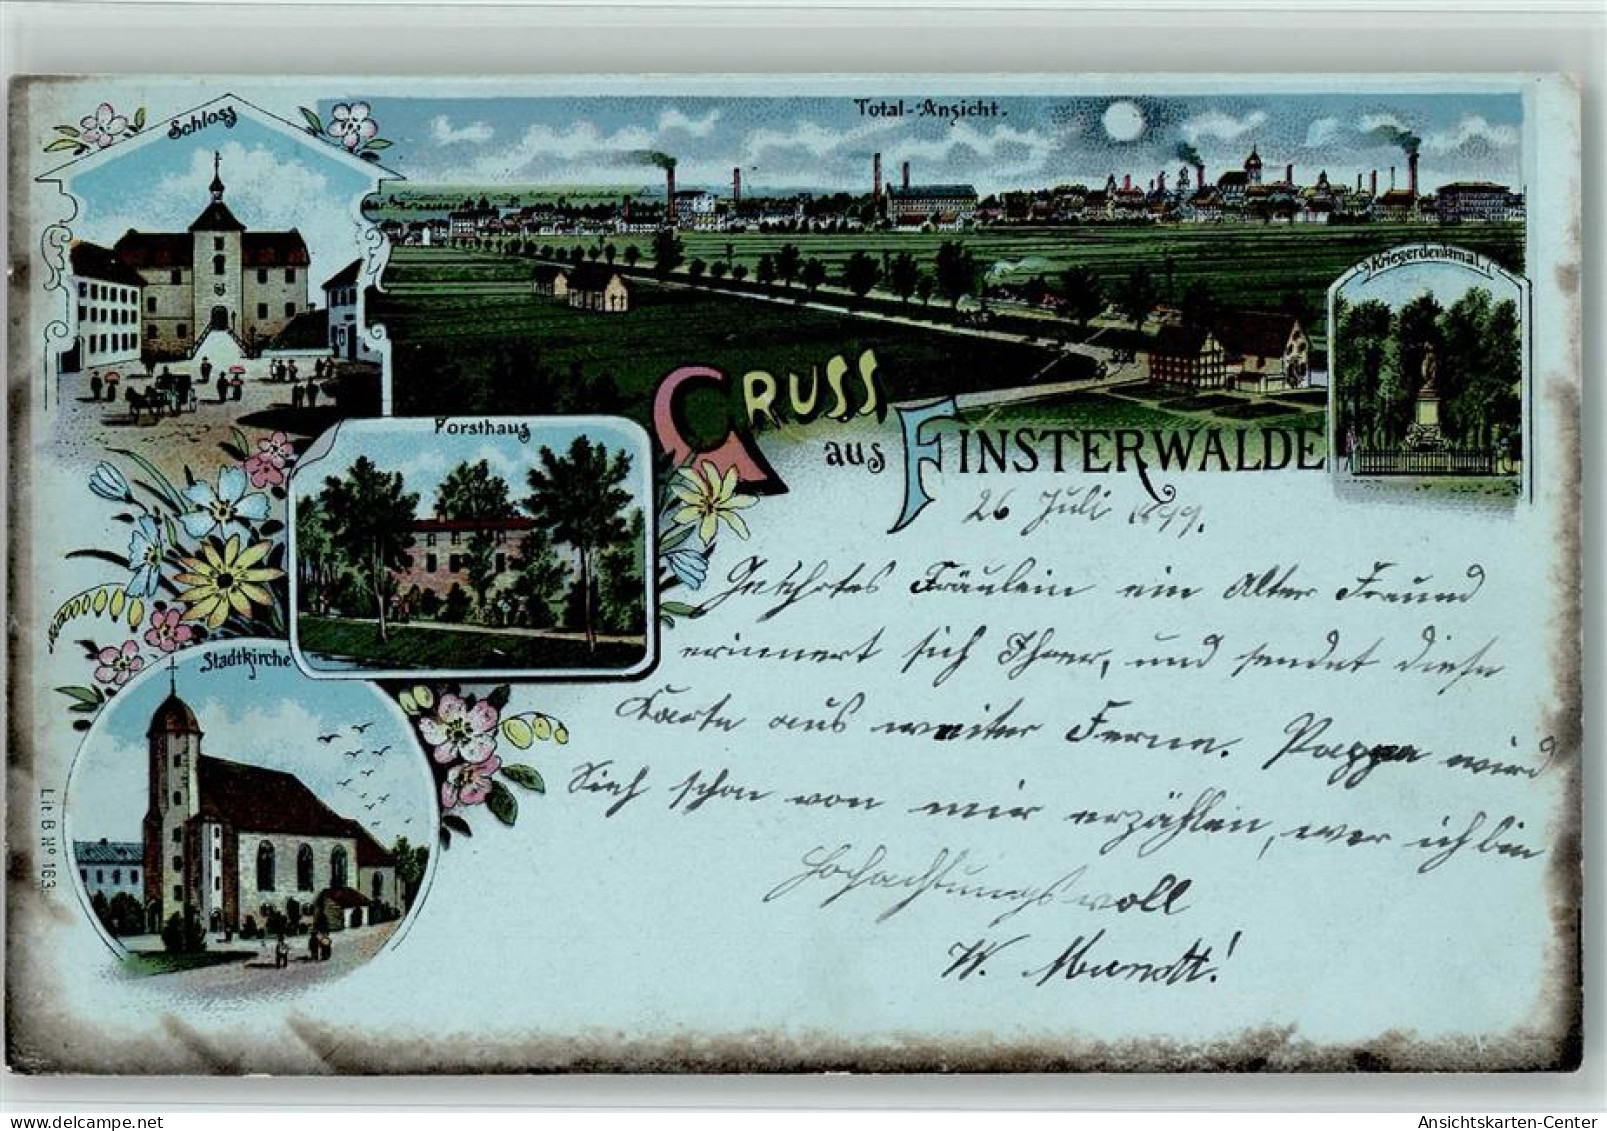 Schloss
Total-Ansicht.
Kriegerdenkmal.
Forsthaus
Gruss
aus Finsterwalde
Stadtkirche
Lit B Nº 163.
26 Juli 1899.
Geehrtes Fräulein ein Alter Freund
erinnert sich Ihrer, und sendet diese
Karte aus weiter Ferne. Pappa wird
Sich schon von mir erzählen, wer ich bin
Hochachtungsvoll
W. Mundt!
Ansichtskarten-Center